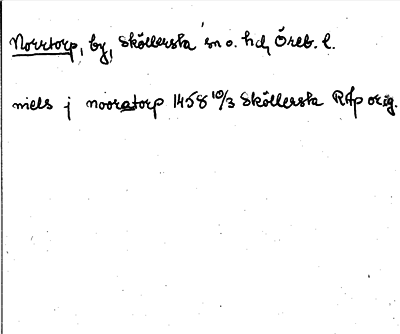 Norrtorp, by, Sköllersta sn o. hd, Öreb. l.
niels j nooratorp 1458 10/3 Sköllersta RAp orig.